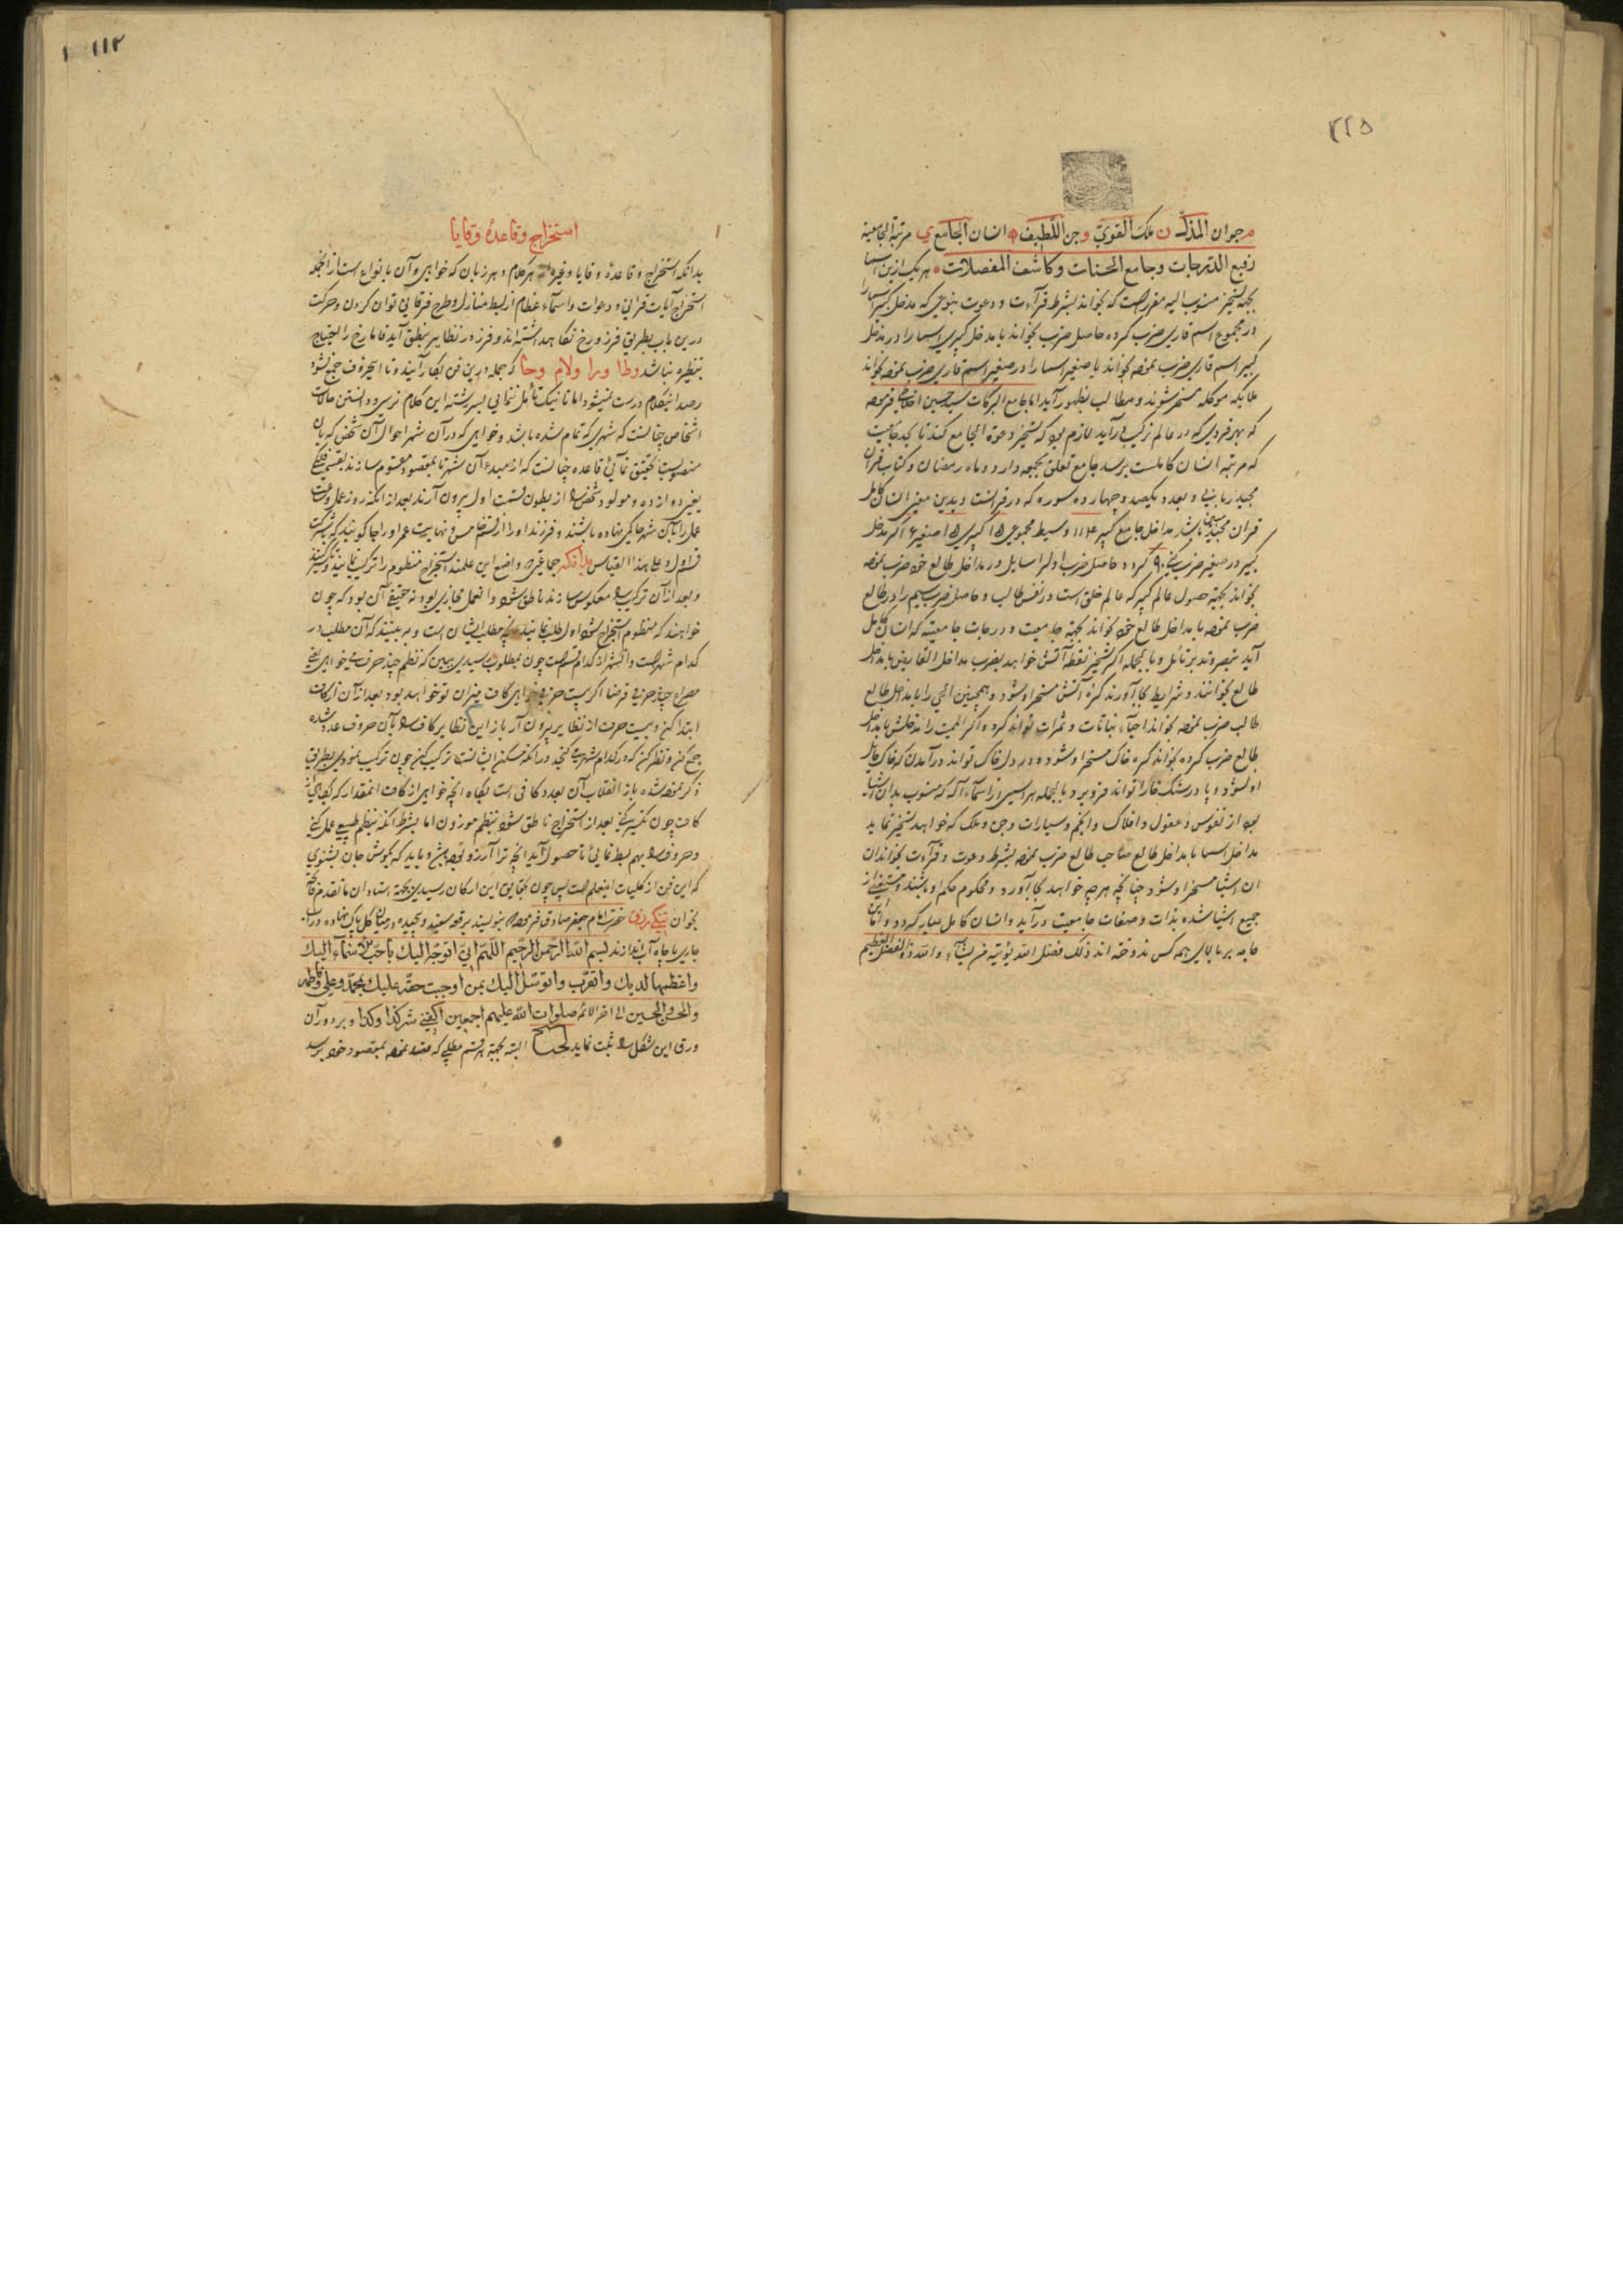 ۲۲۵
م حیوان المذل ن ملک القوی و جن اللطیف ه انسان الجامع ی مرتبة الجامعیة
رفیع الدرجات و جامع الحسنات و کاشف المفصلات هر یک ازین اسما
بجهة تسخیر منسوب الیه مقرر است که بخواند بشرط قرآءت و دعوت بنوعی که مدخل کبیر اسما را
در مجموع اسم قاری ضرب کرده حاصل ضرب بخواند یا مدخل کبیر اسما را در مدخل
کبیر اسم قاری ضرب نموده بخواند یا صغیر اسما را در صغیر اسم قاری ضرب نموده بخواند
ملایکه موکله مسخر شوند و مطالب بظهور آید اما جامع البرکات سید حسین اخلاطی فرموده
که بهر فردی که در عالم ترکیب درآید لازم بود که تسخیر دعوة الجامع کند تا بحد جامعیت
که مرتبه انسان کاملست برسد جامع تعلق بجمعه دارد و ماه رمضان و کتاب قران
مجید زبانی و بعدد یکصد و چهارده سوره که در قرانست و بدین معنی انسان کامل
قران مجید باشد مداخل جامع کبیر ۱۱۴ وسیط مجموعی ۱۵ کبیر ۱۵ صغیر ۶ اگر مدخل
کبیر در صغیر ضرب کنی ۹۰ گردد حاصل ضرب اول را سایل در مداخل طالع خود ضرب نموده
بخواند بجهة حصول عالم کبیر که عالم خلق است در نفس طالب و حاصل ضرب سیم را در طالع
ضرب نموده با مداخل طالع خود بخواند بجهة جامعیت و درجات جامعیته که انسان کامل
آید بتبصره و تدبر تأمل و بالجمله اگر تسخیر نقطه آتش خواهد بضرب مداخل القابض با مداخل
طالع بخوانند و شرایط بجا آورند کره آتش مسخر او شود و همچنین الحی را با مداخل طالع
طالب ضرب نموده بخواند احیآء نباتات و ثمرات تواند کرد و اگر الممیت را مدخلش با مداخل
طالع ضرب کرده بخواند کره خاک مسخر او شود و در دل خاک تواند درآمدن که خاک حایل
او نشود و پا در سنگ خارا تواند فرو برد بالجمله هر اسمی از اسمآء الله که منسوب بدان اشیا
بود از نفوس و عقول و افلاک و انجم و سیارات و جن و ملک که خواهد تسخیر نماید
مداخل اسما با مداخل طالع صاحب طالع ضرب نموده بشرط دعوت و قرآءت بخواند آن
ان اشیا مسخر او شود چنانچه هر چه خواهد بجا آورد و محکوم حکم او باشند و مستغنی از
جمیع اشیا شده بذات و صفات جامعیت درآید و انسان کامل عیار گردد و اما این
جامه بر بالای همه کس ندوخته اند ذلک فضل الله یؤتیه من یشآء والله ذو الفضل العظیم
۱۱۲
استخراج و قاعدهٔ وقایا
بدانکه استخراج و قاعدهٔ وقایا و غیره از هر کلام و هر زبان که خواهی و آن بانواع است از انجمله
استخراج آیات قرآنی و دعوات و اسمآء عظام از بسط منازل و طرح فرقانی توان کردن و حرکت
درین باب بطریق فرز و رخ نگاه داشته اند و فرز در نظایر بنطق آید فاما رخ را احتیاج
بنظیره نباشد وطا ورا ولام وحا که جمله درین فن بکار آیند و تا این حروف جمع نشود
رصد این کلام درست نمیشود اما تا نیک تأمل ننمایی بسر رشته این کلام نرسی و دانستن حالات
اشخاص چنانست که شهری که تمام شده باشد و خواهی که در آن شهر احوال آن شخص که بان
منصوبست تحقیق نمائی قاعده چنانست که از مبدء آن شهر تا بمقصود مقسوم سازند
یعنی ده از ده و مولود شخص را از بطون قسمت اول بیرون آرند بعد از انکه روز عمل و ساعت
عمل را با آن شهر حاکمی نهاده باشند و فرزند او را از قسم خامس و نهایت عمر او را جا گویند که بشرکت
قسم اول و علی هذا القیاس جماعتی که واضع این علمند استخراج منظوم را ترکیب نمایند
و بعد از آن ترکیب را معکوس سازند ناطق شود و انعمل مجازی بود نه حقیقی آن بود که چون
خواهند که منظوم استخراج شود اول طلب نمایند انچه مطلب ایشان است و به بینند که آن مطلب در
کدام شهر است و انشهر از کدام قسم است چون بمطلوب رسیدی ببین که نظم چند حرف میخواهی یعنی
مصراع چند حرفی فرضا اگر بیست حرفی خواهی کاف میزان تو خواهد بود بعد از آن از کاف
ابتدا کن و بیست حرف از نظایر بیرون آر باز از این نظایر کاف را بآن حروف عدد شده
جمع کن و نظر کن که در کدام شهر می گنجد در انکه مسکن ایشانست ترکیب کن چون ترکیب نمودی بطریق
ذکر نموده شده باز انقلاب آن بعدد کافی است نگاه انچه خواهی از کاف انمقدار که بجای
کاف چون تکسیر کنی بعد از استخراج ناطق شود بنظم موزون اما بشرط انکه بنظم طبیعی عمل کنی
و حروف را بهم بسط نمائی تا حصول آید انچه ترا آرزو بوده باشد و باید که بگوش جان بشنوی
که این فن از کلیات اینعلم است پس چون بحقایق این ارکان رسیدی بجهة استادان ما تقدم فاتحه
بخوان حضرت امام جعفر صادق فرموده بنویسند برقعه سفید و پیچیده در میان گل پاک نهاده در آب
جاری یا چاه آب اندازند بسم الله الرحمن الرحیم اللهم انی اتوجه الیک باحب الاسمآء الیک
واعظمها لدیک واتقرب واتوسل الیک بمن اوجبت حقه علیک بمحمد وعلی وفاطمه
والحسن والحسین الی اخر الائمه صلوات الله علیهم اجمعین اکفنی شر کذا وکذا و بر دور آن
ورق این شکل را ثبت نماید البته بجهة هر قسم مطلبی که مقصد نموده بمقصود خود برسد